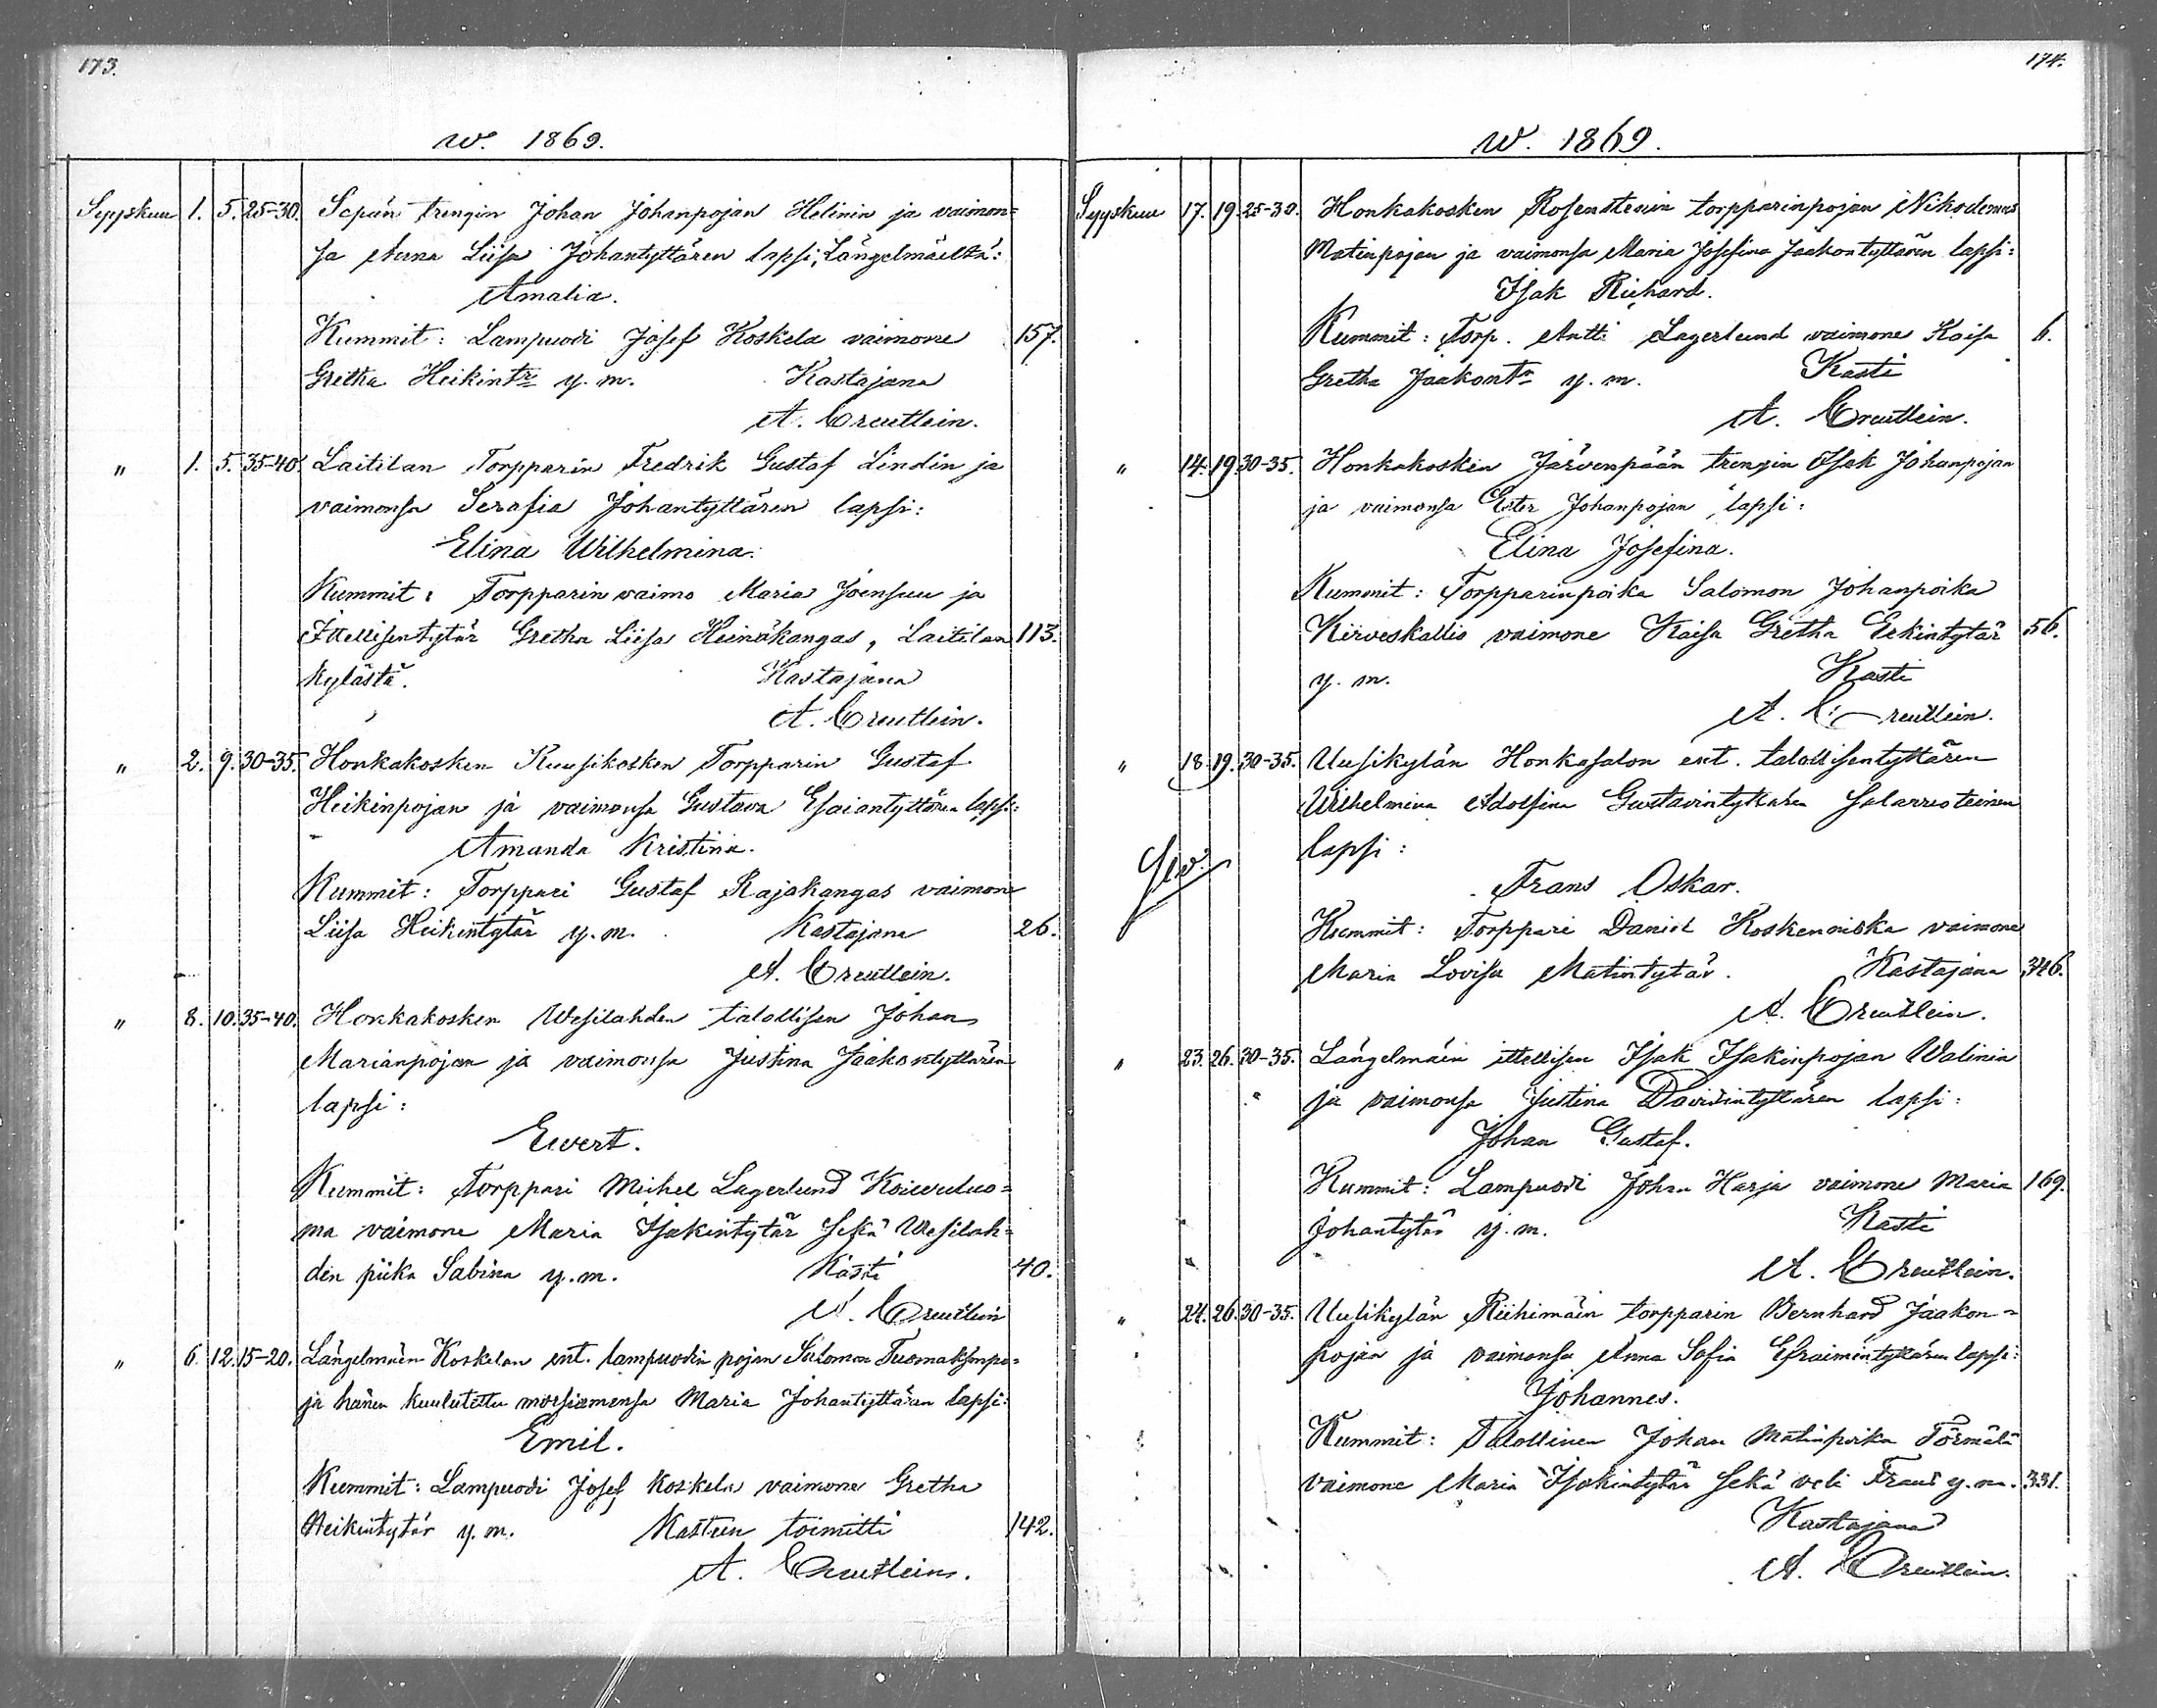 173.
w. 1869.
Syyskuu 1. 5. 25-30. Sepän trengin Johan Johanpojan Helinin ja vaimon=
sa Anna Liisa Johantyttären lapsi, Längelmäeltä:
Amalia.
Kummit: Lampuodi Josef Koskela vaimone 157.
Gretha Heikintr y. m. Kastajana
A. Creutlein.
" 1. 5. 35-40. Laitilan Torpparin Fredrik Gustaf Lindin ja
vaimonsa Serafia Johantyttären lapsi:
Elina Wilhelmina.
Kummit: Torpparin vaimo Maria Joensuu ja
Ittellisentytär Gretha Liisa Heinäkangas, Laitilan 113.
kylästä. Kastajana
A. Creutlein.
" 2. 9. 30-35. Honkakosken Kuusikosken Torpparin Gustaf
Heikinpojan ja vaimonsa Gustava Esaiantyttären lapsi:
Amanda Kristina.
Kummit: Torppari Gustaf Rajakangas vaimone
Liisa Heikintytär y. m. Kastajana 26.
A. Creutlein.
" 8. 10. 35-40. Honkakosken Wesilahden talollisen Johan
Marianpojan ja vaimonsa Justina Jaakontyttären
lapsi:
Ewert.
Kummit: Torppari Michel Lagerlund Koivuluo=
ma vaimone Maria Isakintytär sekä Wesilah=
den piika Sabina y. m. Kasti 40.
A. Creutlein
" 6. 12. 15-20. Längelmäen Koskelan ent. lampuodin pojan Salomon Tuomaksenpo=
ja hänen kuulutettu morsiamensa Maria Johantyttären lapsi:
Emil.
Kummit: Lampuodi Josef Koskela vaimone Gretha
Heikintytär y. m. Kasteen toimitti 142.
A. Creutlein.
174.
w. 1869.
Syyskuu 17. 19. 25-30. Honkakosken Rosenstenin torpparinpojan Nikodemus
Matinpojan ja vaimonsa Maria Josefina Jaakontyttären lapsi:
Isak Richard.
Kummit: Torp. Antti Lagerlund vaimone Kaisa 6.
Gretha Jaakontr y. m. Kasti
A. Creutlein.
" 14. 19. 30-35. Honkakosken Järvenpään trengin Isak Johanpojan
ja vaimonsa Ester Johanpojan lapsi:
Elina Josefina.
Kummit: Torpparinpoika Salomon Johanpoika
Kirveskallio vaimone Kaisa Gretha Eekintytär 56.
y. m. Kasti
A. Creutlein.
" 18. 19. 30-35. Uusikylän Honkasalon ent. talollisentyttären
Wilhelmina Adolfina Gustavintyttären salavuoteinen
lapsi:
Frans Oskar.
Kummit: Torppari Daniel Koskenniska vaimone
Maria Lovisa Matintytär. Kastajana 346.
A. Creutlein.
" 23. 26. 30-35. Längelmäen ittellisen Isak Isakinpojan Walinin
ja vaimonsa Justina Davidintyttären lapsi:
Johan Gustaf.
Kummit: Lampuodi Johan Harja vaimone Maria 169.
Johantytär y. m. Kasti
A. Creutlein.
" 24. 26. 30-35. Uusikylän Riihimäen torpparin Bernhard Jaakon=
pojan ja vaimonsa Anna Sofia Efraimintyttären lapsi:
Johannes.
Kummit: Talollinen Johan Matinpoika Törmälä
vaimone Maria Isakintytär sekä veli Frans y. m. 331.
Kastajana
A. Creutlein.